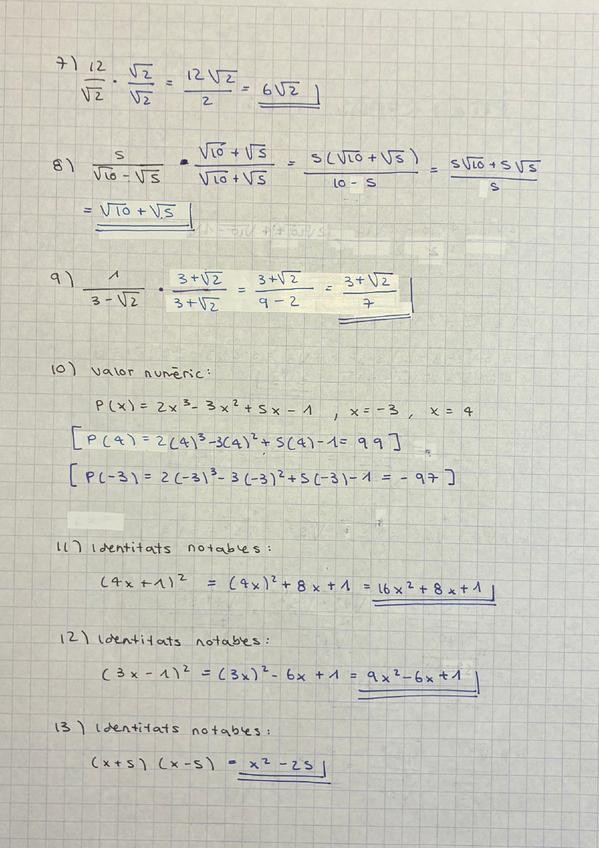 7) 12/√2 · √2/√2 = 12√2/2 = 6√2
8) 5/(√10 - √5) · (√10 + √5)/(√10 + √5) = 5(√10 + √5)/(10 - 5) = (5√10 + 5√5)/5
= √10 + √5
9) 1/(3 - √2) · (3+√2)/(3+√2) = (3+√2)/(9 - 2) = (3+√2)/7
10) Valor numèric:
P(x) = 2x³ - 3x² + 5x - 1 , x = -3 , x = 4
[P(4) = 2(4)³ - 3(4)² + 5(4) - 1 = 99]
[P(-3) = 2(-3)³ - 3(-3)² + 5(-3) - 1 = -97]
11) Identitats notables:
(4x + 1)² = (4x)² + 8x + 1 = 16x² + 8x + 1
12) Identitats notables:
(3x - 1)² = (3x)² - 6x + 1 = 9x² - 6x + 1
13) Identitats notables:
(x+5) (x-5) = x² - 25